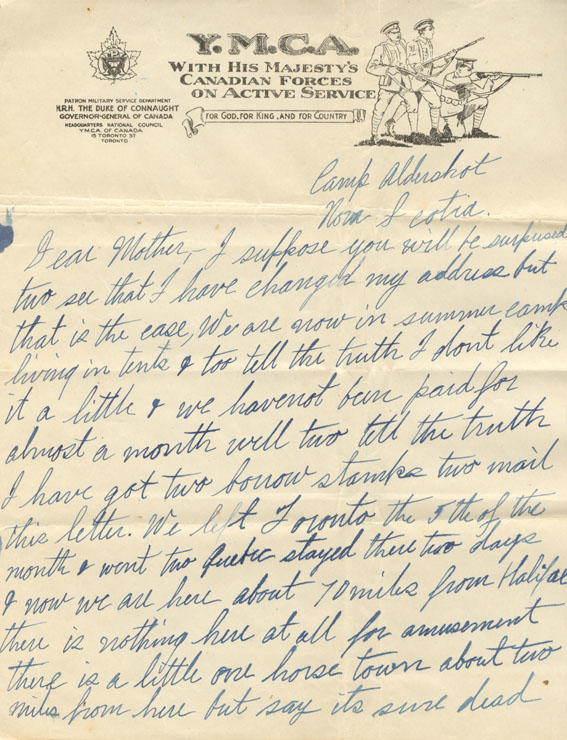 Y.M.C.A.
WITH HIS MAJESTY'S
CANADIAN FORCES
ON ACTIVE SERVICE
FOR GOD, FOR KING, AND FOR COUNTRY
PATRON MILITARY SERVICE DEPARTMENT
H.R.H. THE DUKE OF CONNAUGHT
GOVERNOR-GENERAL OF CANADA
HEADQUARTERS NATIONAL COUNCIL
Y.M.C.A. OF CANADA
15 TORONTO ST
TORONTO
Camp Aldershot
Nova Scotia.
Dear Mother,- I suppose you will be surprised
two see that I have changed my address but
that is the case, We are now in summer camp
living in tents & too tell the truth I dont like
it a little & we have not been paid for
almost a month well two tell the truth
I have got two borrow stamps two mail
this letter. We left Toronto the 5th of the
month & went two Quebec stayed there two days
& now we are here about 70 miles from Halifax
there is nothing here at all for amusement
there is a little one horse town about two
miles from here but say its sure dead